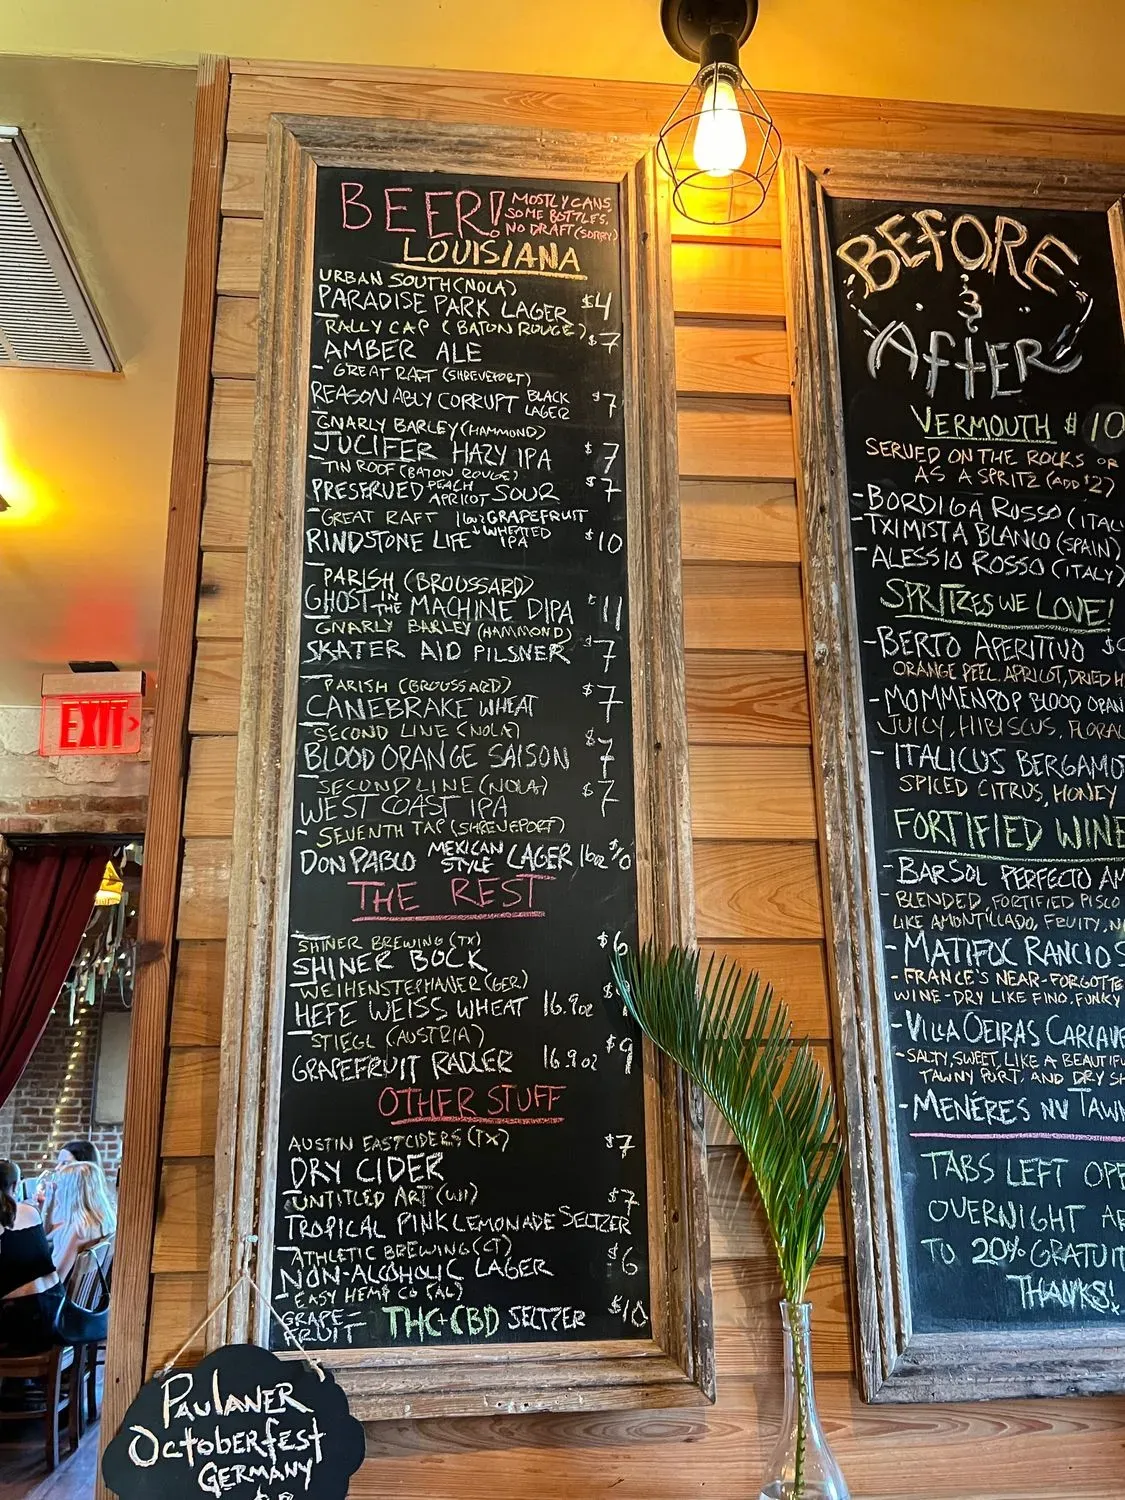 BEER!
MOSTLY CANS,
SOME BOTTLES,
NO DRAFT (SORRY)
LOUISIANA
URBAN SOUTH (NOLA)
PARADISE PARK LAGER $4
RALLY CAP (BATON ROUGE)
AMBER ALE $7
GREAT RAFT (SHREVEPORT)
REASONABLY CORRUPT BLACK LAGER $7
GNARLY BARLEY (HAMMOND)
JUCIFER HAZY IPA $7
TIN ROOF (BATON ROUGE)
PRESERVED PEACH APRICOT SOUR $7
GREAT RAFT 16oz GRAPEFRUIT
RINDSTONE LIFE WHEATED IPA $10
PARISH (BROUSSARD)
GHOST IN THE MACHINE DIPA $11
GNARLY BARLEY (HAMMOND)
SKATER AID PILSNER $7
PARISH (BROUSSARD)
CANEBRAKE WHEAT $7
SECOND LINE (NOLA)
BLOOD ORANGE SAISON $7
SECOND LINE (NOLA)
WEST COAST IPA $7
SEVENTH TAP (SHREVEPORT)
DON PABLO MEXICAN STYLE LAGER 16oz $10
THE REST
SHINER BREWING (TX)
SHINER BOCK $6
WEIHENSTEPHANER (GER)
HEFE WEISS WHEAT 16.9oz
STIEGL (AUSTRIA)
GRAPEFRUIT RADLER 16.9oz $9
OTHER STUFF
AUSTIN EASTCIDERS (TX)
DRY CIDER $7
UNTITLED ART (WI)
TROPICAL PINK LEMONADE SELTZER $7
ATHLETIC BREWING (CT)
NON-ALCOHOLIC LAGER $6
EASY HEMP CO (AL)
GRAPE-FRUIT THC+CBD SELTZER $10
BEFORE
&
AFTER
VERMOUTH $10
SERVED ON THE ROCKS OR
AS A SPRITZ (ADD $2)
-BORDIGA ROSSO (ITAL
-TXIMISTA BLANCO (SPAIN)
-ALESSIO ROSSO (ITALY)
SPRITZES WE LOVE!
-BERTO APERITIVO
ORANGE PEEL, APRICOT, DRIED H
-MOMMENPOP BLOOD ORAN
JUICY, HIBISCUS, FLORAL
-ITALICUS BERGAMO
SPICED CITRUS, HONEY
FORTIFIED WINE
-BARSOL PERFECTO AM
-BLENDED, FORTIFIED PISCO
LIKE AMONTILLADO, FRUITY, N
-MATIFOC RANCIO S
-FRANCE'S NEAR-FORGOTTE
WINE-DRY LIKE FINO, FUNKY
-VILLA OEIRAS CARCAVE
-SALTY, SWEET, LIKE A BEAUTIF
TAWNY PORT AND DRY SH
-MENÉRES NV TAWN
TABS LEFT OPE
OVERNIGHT AR
TO 20% GRATUIT
THANKS!
EXIT
PAULANER
OCTOBERFEST
GERMANY